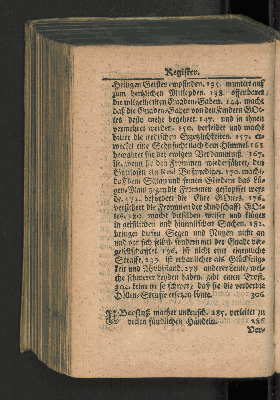 Register.
Heiligen Geistes empfinden. 135. muntert auf
zum hertzlichen Mitleyden. 138. offenbaret
die mitgetheilten Gnaden-Gaben. 144. macht
daß die Gnaden-Gaben von den Kindern GOt-
tes desto mehr begehret. 147. und in ihnen
vermehret werden. 150. verleidet und macht
bitter die irdischen Ergetzlichkeiten. 157. er-
wecket eine Sehnsucht nach dem Himmel. 161
bewahret für der ewigen Verdammniß. 167.
ist, wenn sie den Frommen wiederfähret, den
Gottlosen ein 170. macht,
daß dem Satan und seinen Kindern das Lü-
gen-Maul gegen die Frommen gestopffet wer-
de. 172. befördert die Ehre GOttes. 176.
versichert die Frommen der Kindschafft GOt-
tes. 180. macht dieselben weiser und klüger
in geistlichen und himmlischen Sachen. 182.
bringet diesen Segen und Nutzen nicht an
und vor sich selbst, sondern mit der Gnade ver-
gesellschafftet. 196. ist nicht eine eigentliche
Straffe. 239. ist erbaulicher als Glückselig-
keit und Wohlstand. 278. anderer Leute, wel-
che schwerer Leyden haben, gibt einen Trost.
304. keine ist so schwer, daß sie die verderbte
Höllen-Straffe ersetzen könte. 306
Uberfluß machet unkeusch. 285. verleitet zu
vielen sündlichen Handeln. 286
Ver-